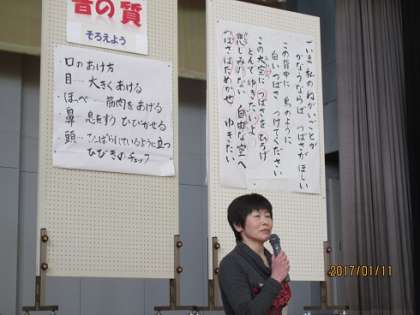 音の質
そろえよう
口のあけ方
目…大きくあける
ほっぺ…筋肉をあげる
鼻…息をすう ひびかせる
頭…さんぱられているように立つ
ひびき チェック
いま 私の ねがいことが
かなうならば つばさが ほしい
この背中に 鳥のように
白い つばさ つけてください
この大空に つばさをひろげ
とんで ゆきたいよ
悲しみのない 自由な 空へ
つばさ はためかせ ゆきたい
2017/01/11